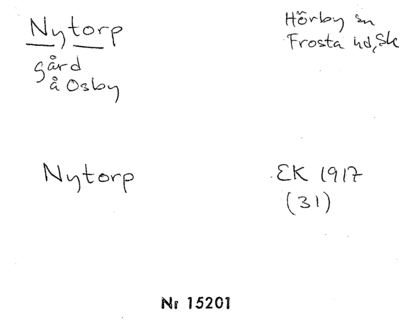 Nytorp
Hörby sn
Frosta hd, Sk
gård
å Osby
Nytorp
EK 1917
(31)
Nr 15201